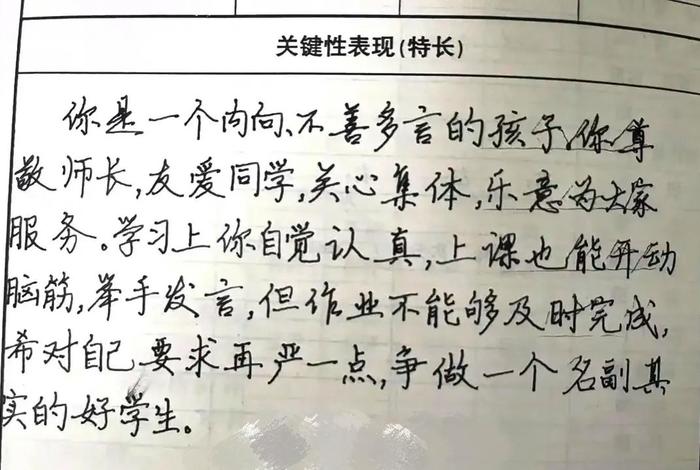 关键性表现(特长)
你是一个内向、不善多言的孩子,你尊
敬师长,友爱同学,关心集体,乐意为大家
服务。学习上你自觉认真,上课也能开动
脑筋,举手发言,但作业不能够及时完成,
希对自己要求再严一点,争做一个名副其
实的好学生。